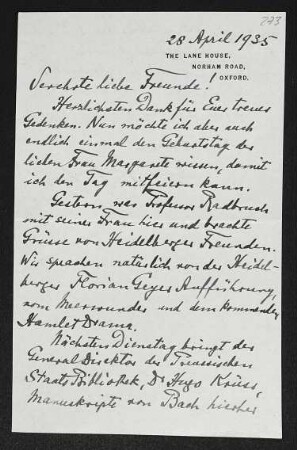 273
28 April 1935
THE LANE HOUSE,
NORHAM ROAD,
OXFORD.
Verehrte liebe Freunde!
Herzlichsten Dank für Euer treues
Gedenken. Nun möchte ich aber auch
endlich einmal den Geburtstag der
lieben Frau Margarete wissen, damit
ich den Tag mitfeiern kann.
Gestern war Professor Radbruch
mit seiner Frau hier und brachte
Grüsse von Heidelberger Freunden.
Wir sprachen natürlich von der Heidel-
berger Florian Geyer Aufführung,
vom Meerwunder und dem kommenden
Hamlet Drama.
Nächsten Dienstag bringt der
General Direktor der Preussischen
Staats Bibliothek, Dr Hugo Krüss,
Manuskripte von Bach hierher